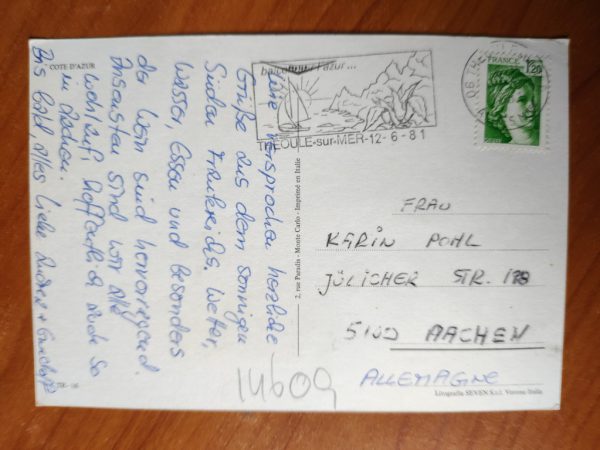 COTE D'AZUR
Wie versprochen herzliche
Grüße aus dem sonnigen
Süden Frankreichs. Wetter,
Wasser, Essen und besonders
der Wein sind hervorragend.
Ansonsten sind wir alle
wohlauf, hoffentlich auch so
in Aachen.
Bis bald, alles Liebe
2, rue Paradis - Monte Carlo - Imprimé en Italie
l'azur...
THEOULE-sur-MER-12-6-81
06 TH
FRANCE
1,20
FRAU
KARIN POHL
JÜLICHER STR. 178
5100 AACHEN
ALLEMAGNE
14609
Litografia SEVEN S.r.l. Verona Italia